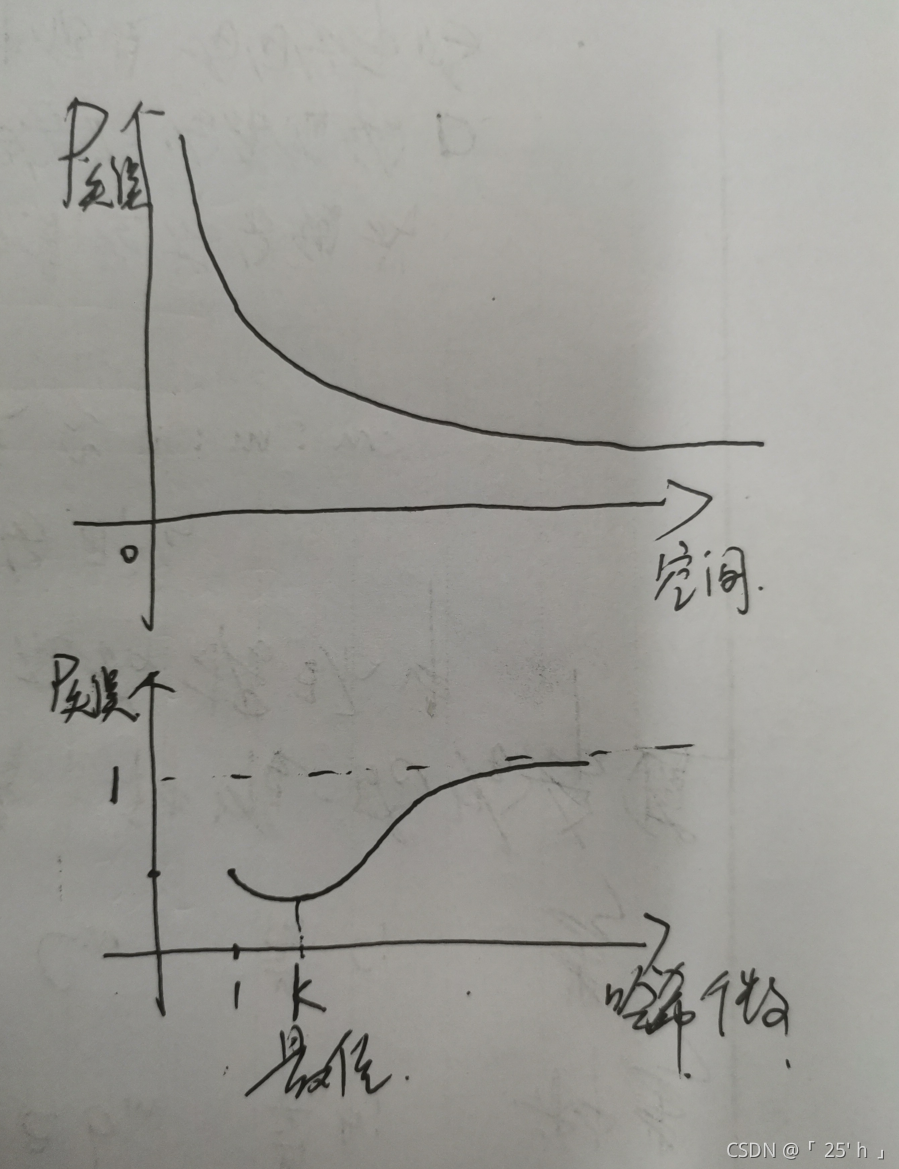 P失误
0
空间.
P失误
1
1
K
哈希个数.
最佳.
CSDN @「 25' h 」